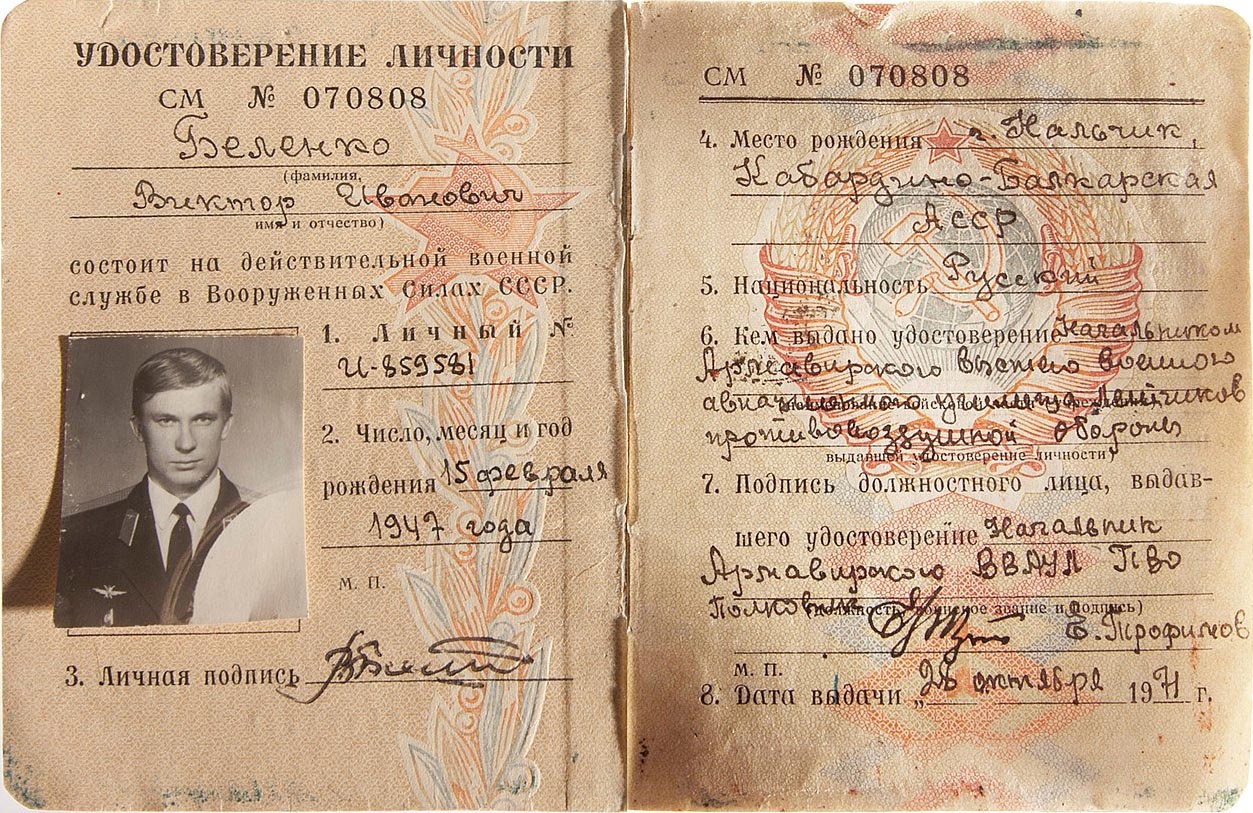 УДОСТОВЕРЕНИЕ ЛИЧНОСТИ
СМ № 070808
Беленко
(фамилия,
Виктор Иванович
имя и отчество)
состоит на действительной военной
службе в Вооруженных Силах СССР.
1. Личный №
И-859581
2. Число, месяц и год
рождения 15 февраля
1947 года
М. П.
3. Личная подпись
СМ № 070808
4. Место рождения г. Нальчик,
Кабардино-Балкарская
АССР
5. Национальность Русский
6. Кем выдано удостоверение Начальником
Армавирского высшего военного
авиационного училища летчиков
противовоздушной обороны
выдавшей удостоверение личности)
7. Подпись должностного лица, выдав-
шего удостоверение Начальник
Армавирского ВВАУЛ ПВО
полковник
(должность, воинское звание и подпись)
Е. Трофимов
М. П.
8. Дата выдачи „28 октября 1971 г.